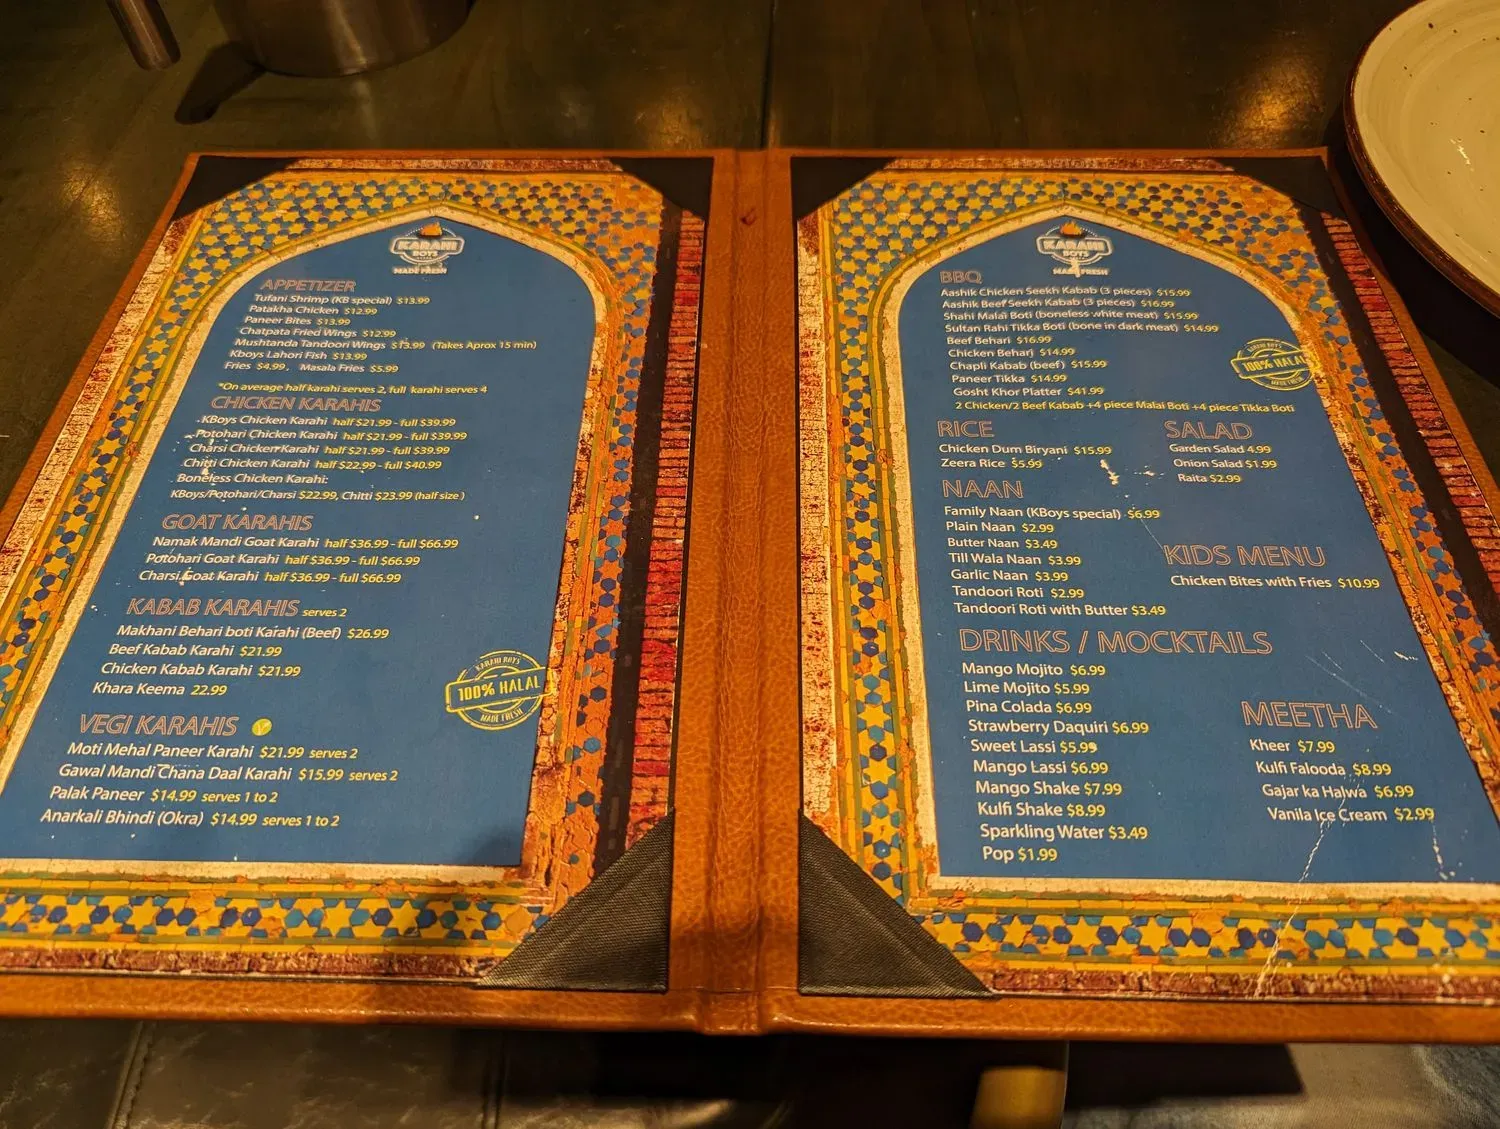 KARAHI
BOYS
MADE FRESH
APPETIZER
Tufani Shrimp (KB special) $13.99
Patakha Chicken $12.99
Paneer Bites $13.99
Chatpata Fried Wings $12.99
Mushtanda Tandoori Wings $13.99 (Takes Aprox 15 min)
Kboys Lahori Fish $13.99
Fries $4.99, Masala Fries $5.99
*On average half karahi serves 2, full karahi serves 4
CHICKEN KARAHIS
KBoys Chicken Karahi half $21.99 - full $39.99
Potohari Chicken Karahi half $21.99 - full $39.99
Charsi Chicken Karahi half $21.99 - full $39.99
Chitti Chicken Karahi half $22.99 - full $40.99
Boneless Chicken Karahi:
KBoys/Potohari/Charsi $22.99, Chitti $23.99 (half size )
GOAT KARAHIS
Namak Mandi Goat Karahi half $36.99 - full $66.99
Potohari Goat Karahi half $36.99 - full $66.99
Charsi Goat Karahi half $36.99 - full $66.99
KABAB KARAHIS serves 2
Makhani Behari boti Karahi (Beef) $26.99
Beef Kabab Karahi $21.99
Chicken Kabab Karahi $21.99
Khara Keema 22.99
KARAHI BOYS
100% HALAL
MADE FRESH
VEGI KARAHIS
Moti Mehal Paneer Karahi $21.99 serves 2
Gawal Mandi Chana Daal Karahi $15.99 serves 2
Palak Paneer $14.99 serves 1 to 2
Anarkali Bhindi (Okra) $14.99 serves 1 to 2
KARAHI
BOYS
MADE FRESH
BBQ
Aashik Chicken Seekh Kabab (3 pieces) $15.99
Aashik Beef Seekh Kabab (3 pieces) $16.99
Shahi Malai Boti (boneless white meat) $15.99
Sultan Rahi Tikka Boti (bone in dark meat) $14.99
Beef Behari $16.99
Chicken Behari $14.99
Chapli Kabab (beef) $15.99
Paneer Tikka $14.99
Gosht Khor Platter $41.99
2 Chicken/2 Beef Kabab +4 piece Malai Boti +4 piece Tikka Boti
KARAHI BOYS
100% HALAL
MADE FRESH
RICE
Chicken Dum Biryani $15.99
Zeera Rice $5.99
SALAD
Garden Salad 4.99
Onion Salad $1.99
Raita $2.99
NAAN
Family Naan (KBoys special) $6.99
Plain Naan $2.99
Butter Naan $3.49
Till Wala Naan $3.99
Garlic Naan $3.99
Tandoori Roti $2.99
Tandoori Roti with Butter $3.49
KIDS MENU
Chicken Bites with Fries $10.99
DRINKS / MOCKTAILS
Mango Mojito $6.99
Lime Mojito $5.99
Pina Colada $6.99
Strawberry Daquiri $6.99
Sweet Lassi $5.99
Mango Lassi $6.99
Mango Shake $7.99
Kulfi Shake $8.99
Sparkling Water $3.49
Pop $1.99
MEETHA
Kheer $7.99
Kulfi Falooda $8.99
Gajar ka Halwa $6.99
Vanila Ice Cream $2.99